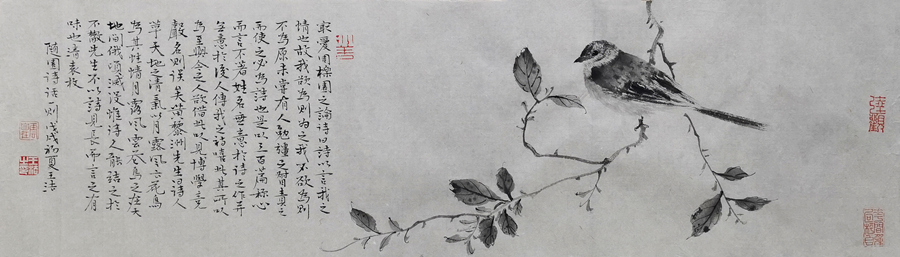 最爱周櫟園之論詩以詩以言我之
情也故我欲為則為之我不欲為則
不為原未嘗有人勉強之督責之
而使之必為詩也是以三百篇称心
而言不著姓名無意於詩之作并
無意於後人傳我之詩嘻此其所以
為至與今之人欲借此以見博學竞
名則误矣黄黎洲先生曰詩人
萃天地之清氣以月露風云花鳥
為其性情月露風雲花鳥之在天
地间俄頃滅沒惟詩人能結之於
不散先生不以詩見長而言之有
味也清袁枚
隨園诗话一則戊戌初夏王洁